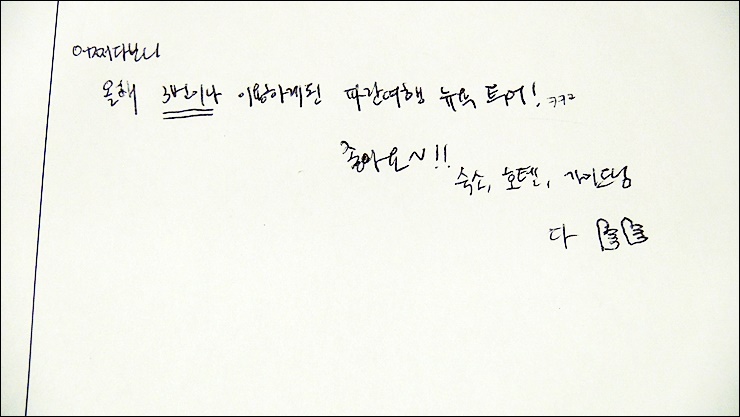 어쩌다보니
올해 3번이나 이용하게된 파란여행 뉴욕 투어! ㅋㅋㅋ
좋아요~!!
숙소, 호텔, 가이드님
다